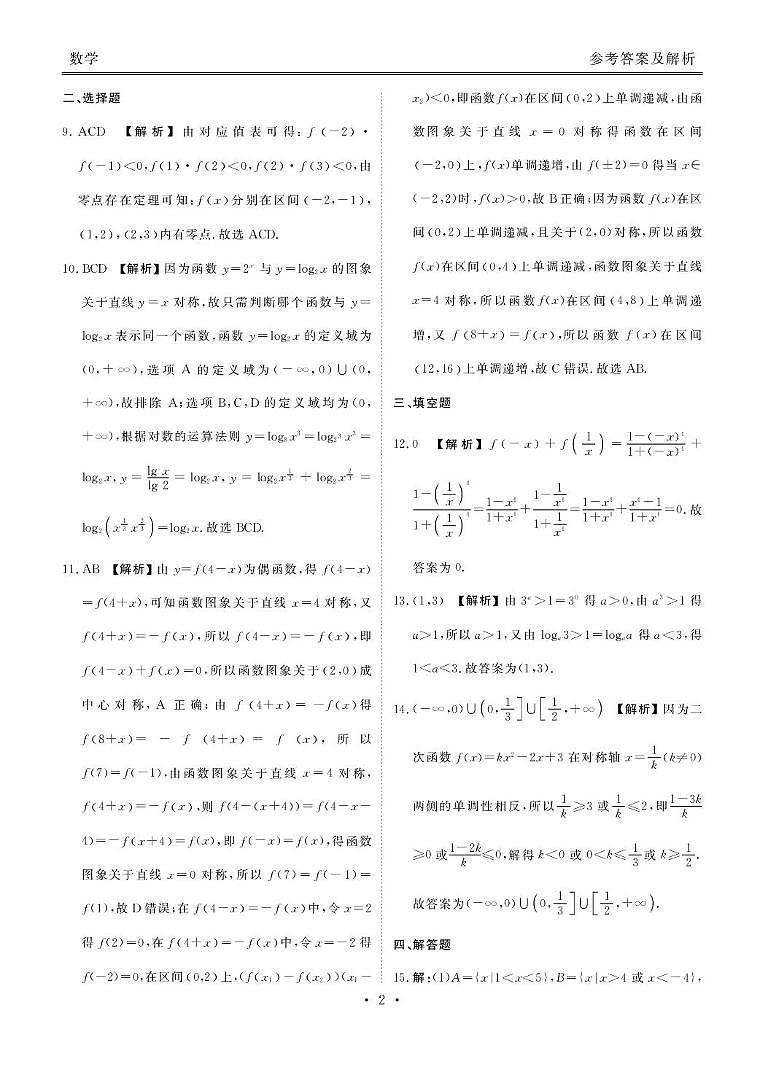 数学
参考答案及解析
二、选择题
9. ACD 【解析】由对应值表可得:f(-2)·
f(-1)<0,f(1)·f(2)<0,f(2)·f(3)<0,由
零点存在定理可知:f(x)分别在区间(-2,-1),
(1,2),(2,3)内有零点.故选 ACD.
10. BCD 【解析】因为函数 y=2ˣ 与 y=log₂x 的图象
关于直线 y=x 对称,故只需判断哪个函数与 y=
log₂x 表示同一个函数,函数 y=log₂x 的定义域为
(0,+∞),选项 A 的定义域为(-∞,0)∪(0,
+∞),故排除 A;选项 B,C,D 的定义域均为(0,
+∞),根据对数的运算法则 y=log₈x³=log₂³x³=
log₂x, y=lg x/lg 2=log₂x, y=log₂x^(1/3)+log₂x^(2/3)=
log₂(x^(1/3)x^(2/3))=log₂x.故选 BCD.
11. AB 【解析】由 y=f(4-x)为偶函数,得 f(4-x)
=f(4+x),可知函数图象关于直线 x=4 对称,又
f(4+x)=-f(x),所以 f(4-x)=-f(x),即
f(4-x)+f(x)=0,所以函数图象关于(2,0)成
中心对称,A 正确;由 f(4+x)=-f(x)得
f(8+x)=-f(4+x)=f(x),所以
f(7)=f(-1),由函数图象关于直线 x=4 对称,
f(4+x)=-f(x),则 f(4-(x+4))=f(4-x-
4)=-f(x+4)=f(x),即 f(-x)=f(x),得函数
图象关于直线 x=0 对称,所以 f(7)=f(-1)=
f(1),故 D 错误;在 f(4-x)=-f(x)中,令 x=2
得 f(2)=0,在 f(4+x)=-f(x)中,令 x=-2 得
f(-2)=0,在区间(0,2)上,(f(x₁)-f(x₂))(x₁-
x₂)<0,即函数 f(x)在区间(0,2)上单调递减,由函
数图象关于直线 x=0 对称得函数在区间
(-2,0)上,f(x)单调递增,由 f(±2)=0 得当 x∈
(-2,2)时,f(x)>0,故 B 正确;因为函数 f(x)在区
间(0,2)上单调递减,且关于(2,0)对称,所以函数
f(x)在区间(0,4)上单调递减,函数图象关于直线
x=4 对称,所以函数 f(x)在区间(4,8)上单调递
增,又 f(8+x)=f(x),所以函数 f(x)在区间
(12,16)上单调递增,故 C 错误.故选 AB.
三、填空题
12. 0 【解析】f(-x)+f(1/x)=(1-(-x)⁴)/(1+(-x)⁴)+
(1-(1/x)⁴)/(1+(1/x)⁴)=(1-x⁴)/(1+x⁴)+(1-1/x⁴)/(1+1/x⁴)=(1-x⁴)/(1+x⁴)+(x⁴-1)/(1+x⁴)=0.故
答案为 0.
13. (1,3) 【解析】由 3ᵃ>1=3⁰ 得 a>0,由 a³>1 得
a>1,所以 a>1,又由 logₐ3>1=logₐa 得 a<3,得
1<a<3.故答案为(1,3).
14. (-∞,0)∪(0,1/3]∪[1/2,+∞) 【解析】因为二
次函数 f(x)=kx²-2x+3 在对称轴 x=1/k(k≠0)
两侧的单调性相反,所以 1/k≥3 或 1/k≤2,即(1-3k)/k
≥0 或(1-2k)/k≤0,解得 k<0 或 0<k≤1/3 或 k≥1/2.
故答案为(-∞,0)∪(0,1/3]∪[1/2,+∞).
四、解答题
15. 解:(1)A={x|1<x<5},B={x|x>4 或 x<-4},
· 2 ·